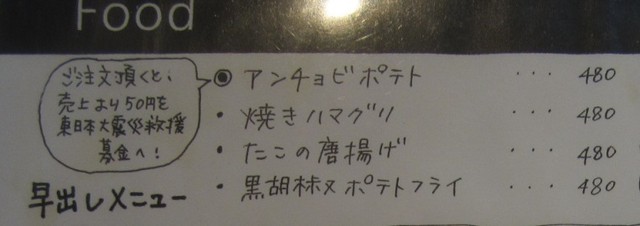 Food
ご注文頂くと、
売上より50円を
東日本大震災救援
募金へ!
早出しメニュー
◉ アンチョビポテト ··· 480
・ 焼きハマグリ ··· 480
・ たこの唐揚げ ··· 480
・ 黒胡椒ポテトフライ ··· 480